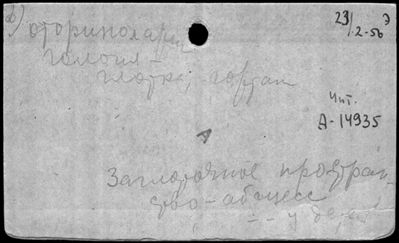 2) оториноларин
гология -
глотка, гортан
23/2-56 Э
Чит.
А-14935
А
Заглоточное простран-
ство - абсцесс
-- у детей